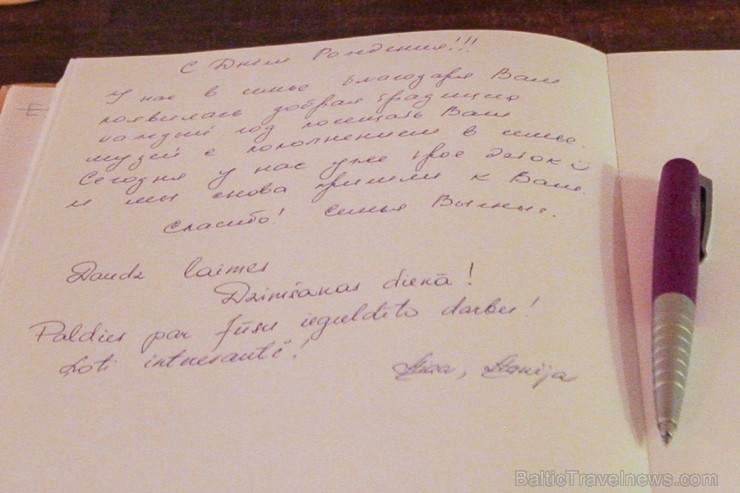 С Днём Рождения!!!
У нас в семье благодаря Вам
появилась добрая традиция
каждый год посещать Ваш
музей с пополнением в семье.
Сегодня у нас уже трое деток
и мы снова пришли к Вам.
Спасибо! Семья
Daudz laimes
Dzimšanas dienā!
Paldies par Jūsu ieguldīto darbu!
Ļoti intresanti!
BalticTravelnews.com